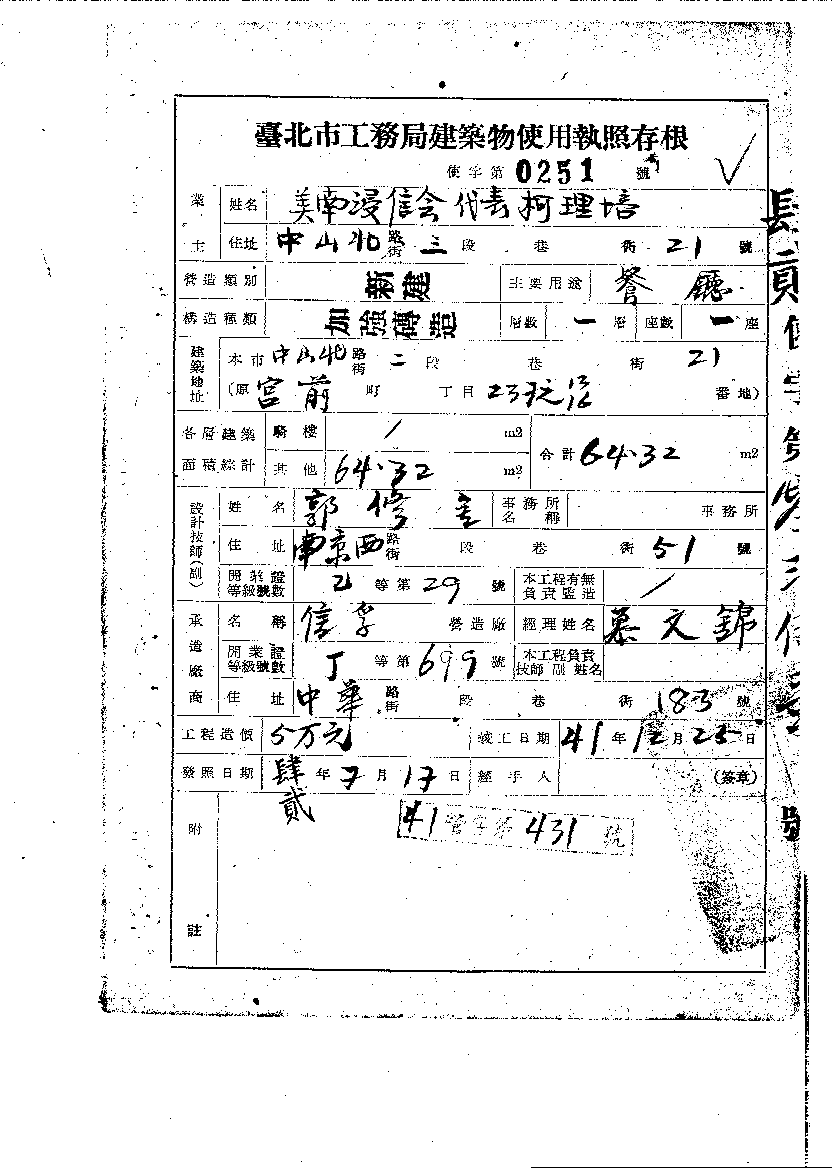 臺北市工務局建築物使用執照存根
使字第0251號
業主 姓名 美南浸信会代表柯理培
住址 中山北路街三段 巷 街21號
營造類別 新建 主要用途 餐廳
構造種類 加強磚造 層數 一層 座數 一座
建築地址 本市中山北路街二段 巷 街21
(原宮前町 丁目 番地)
各層建築面積綜計 騎樓 / m2 合計64.32 m2
其他 64.32 m2
設計技師(副) 姓名 郭修 事務所名稱 事務所
住址 南京西路街 段 巷 街51號
開業證等級號數 乙等第29號 本工程有無負責監造 /
承造廠商 名稱 信孚 營造廠 經理姓名 慕文錦
開業證等級號數 丁等第699號 本工程負責技師副姓名
住址 中華路街 段 巷 街183號
工程造價 5万元 竣工日期 41年12月25日
發照日期 肆貳年7月17日 經手人 (簽章)
附註
41營字第431號